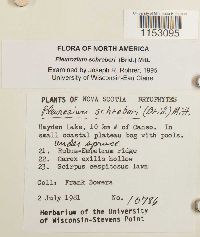 1153095
FLORA OF NORTH AMERICA
Pleurozium schreberi (Brid.) Mitt.
Examined by Joseph R. Rohrer, 1995
University of Wisconsin-Eau Claire
PLANTS OF NOVA SCOTIA BRYOPHYTES
Pleurozium schreberi (Brid.) Mitt.
Hayden Lake, 10 km W of Canso. In
small coastal plateau bog with pools.
under spruce
21. Rubus-Empetrum ridge
22. Carex exilis hollow
23. Scirpus cespitosus lawn
Coll: Frank Bowers
2 July 1981 No. 10786
Herbarium of the University
of Wisconsin-Stevens Point